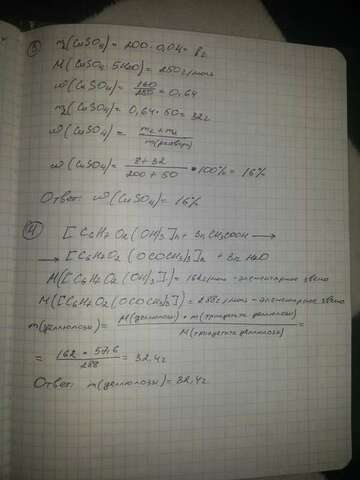 ③ m₁(CuSO₄) = 200 · 0,04 = 8г
M(CuSO₄ · 5H₂O) = 250г/моль
ω(CuSO₄) = 160/250 = 0,64
m₂(CuSO₄) = 0,64 · 50 = 32г
ω(CuSO₄) = (m₁ + m₂)/m(раствора)
ω(CuSO₄) = (8 + 32)/(200 + 50) · 100% = 16%
Ответ: ω(CuSO₄) = 16%
④ [C₆H₇O₂(OH)₃]n + 3nCH₃COOH →
→ [C₆H₇O₂(OCOCH₃)₃]n + 3nH₂O
M([C₆H₇O₂(OH)₃]) = 162г/моль - элементарное звено
M([C₆H₇O₂(OCOCH₃)₃]) = 288г/моль - элементарное звено
m(целлюлозы) = M(целлюлозы) · m(триацетата целлюлозы)/M(триацетата целлюлозы) =
= 162 · 57,6/288 = 32,4г
Ответ: m(целлюлозы) = 32,4г